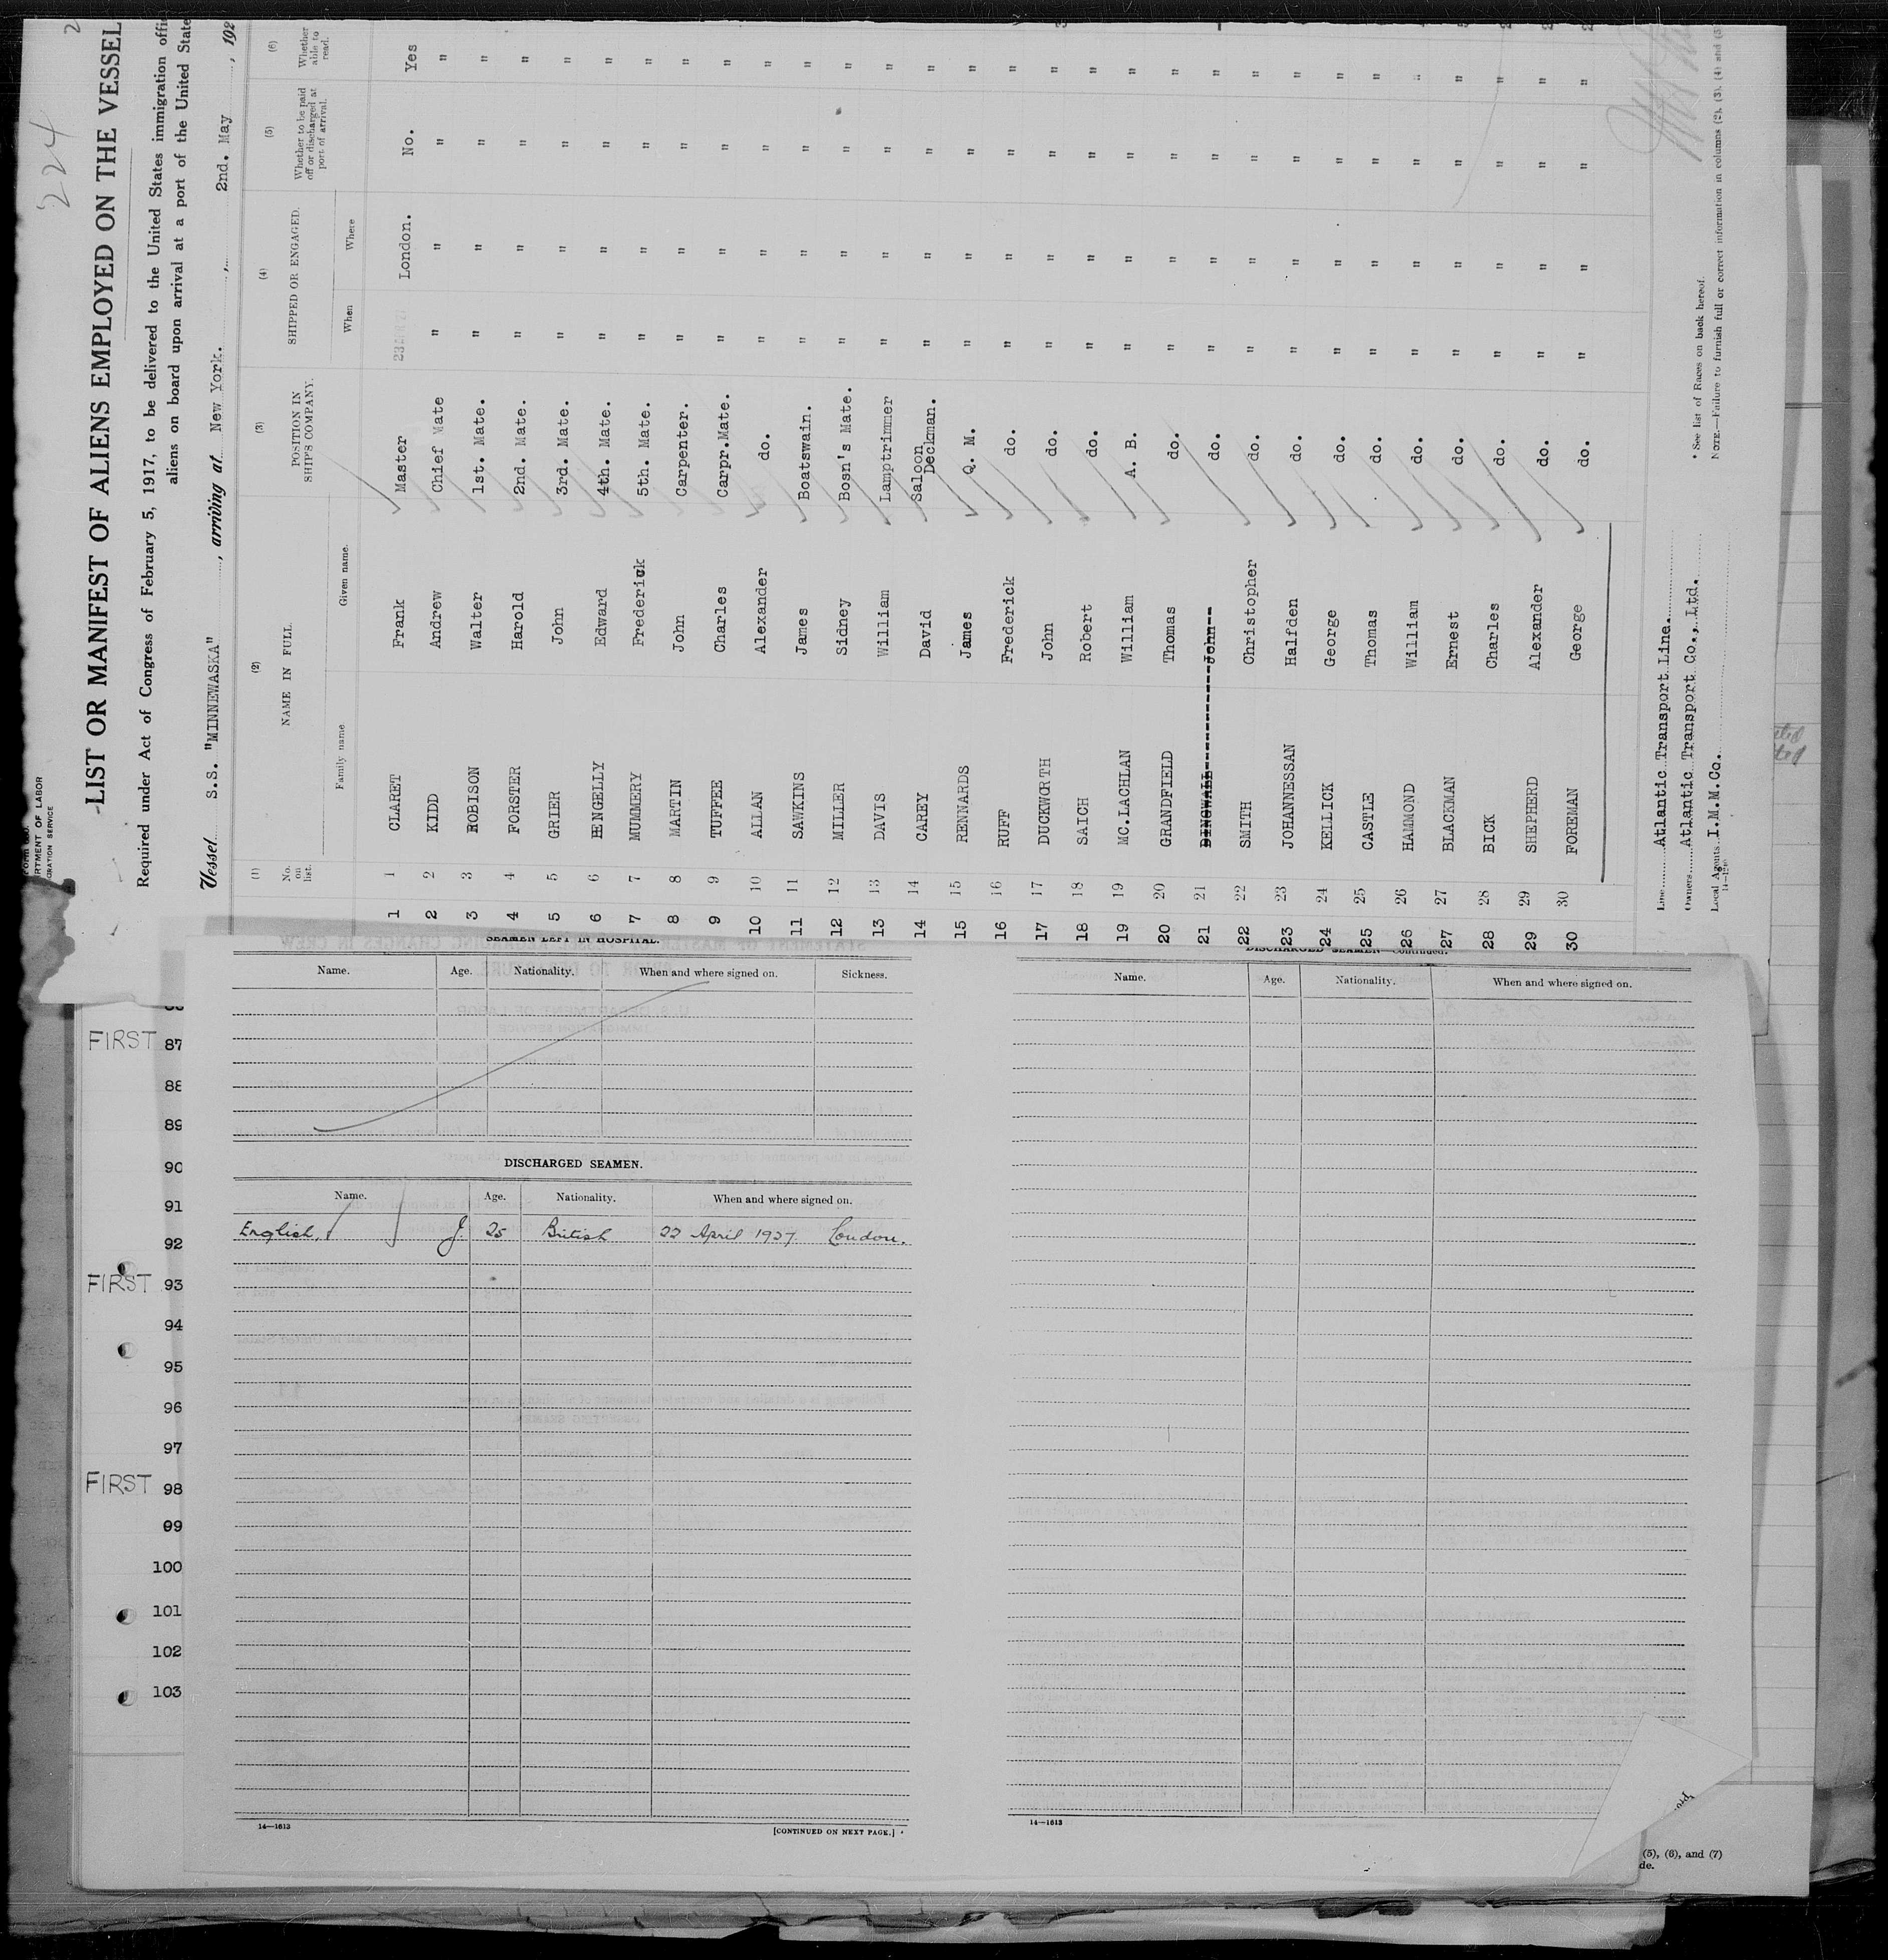 224
LIST OR MANIFEST OF ALIENS EMPLOYED ON THE VESSEL
RTMENT OF LABOR
GRATION SERVICE
Required under Act of Congress of February 5, 1917, to be delivered to the United States immigration
aliens on board upon arrival at a port of the United
Vessel S.S. "MINNEWASKA", arriving at New York. 2nd. May, 192
(1) (2) (3) (4) (5) (6)
No. on list. NAME IN FULL. POSITION IN SHIP'S COMPANY. SHIPPED OR ENGAGED. Whether to be paid off or discharged at port of arrival. Whether able to read.
Family name Given name. When Where
1 1 CLARET Frank Master London. No. Yes
2 2 KIDD Andrew Chief Mate " " " "
3 3 ROBISON Walter 1st. Mate. " " " "
4 4 FORSTER Harold 2nd. Mate. " " " "
5 5 GRIER John 3rd. Mate. " " " "
6 6 HENGELLY Edward 4th. Mate. " " " "
7 7 MUMMERY Frederick 5th. Mate. " " " "
8 8 MARTIN John Carpenter. " " " "
9 9 TUFFEE Charles Carpr.Mate. " " " "
10 10 ALLAN Alexander do. " " " "
11 11 SAWKINS James Boatswain. " " " "
12 12 MILLER Sidney Bosn's Mate. " " " "
13 13 DAVIS William Lamptrimmer " " " "
14 14 CAREY David Saloon Deckman. " " " "
15 15 RENNARDS James Q. M. " " " "
16 16 RUFF Frederick do. " " " "
17 17 DUCKWORTH John do. " " " "
18 18 SAICH Robert do. " " " "
19 19 MC.LACHLAN William A. B. " " " "
20 20 GRANDFIELD Thomas do. " " " "
21 21 DINGWALL John do. " " " "
22 22 SMITH Christopher do. " " " "
23 23 JOHANNESSAN Halfden do. " " " "
24 24 KELLICK George do. " " " "
25 25 CASTLE Thomas do. " " " "
26 26 HAMMOND William do. " " " "
27 27 BLACKMAN Ernest do. " " " "
28 28 BICK Charles do. " " " "
29 29 SHEPHERD Alexander do. " " " "
30 30 FOREMAN George do. " " " "
Line Atlantic Transport Line.
Owners Atlantic Transport Co., Ltd.
Local Agents I.M.M.Co.
* See list of Races on back hereof.
NOTE.—Failure to furnish full or correct information in columns (2), (3), (4) and (5)
SEAMEN LEFT IN HOSPITAL.
Name. Age. Nationality. When and where signed on. Sickness.
DISCHARGED SEAMEN.
Name. Age. Nationality. When and where signed on.
English, J. 25 British 22 April 1927 London.
14—1613
[CONTINUED ON NEXT PAGE.]
DISCHARGED SEAMEN—Continued.
Name. Age. Nationality. When and where signed on.
14—1613
FIRST 87
88
89
90
91
92
FIRST 93
94
95
96
97
FIRST 98
99
100
101
102
103
(5), (6), and (7)
de.